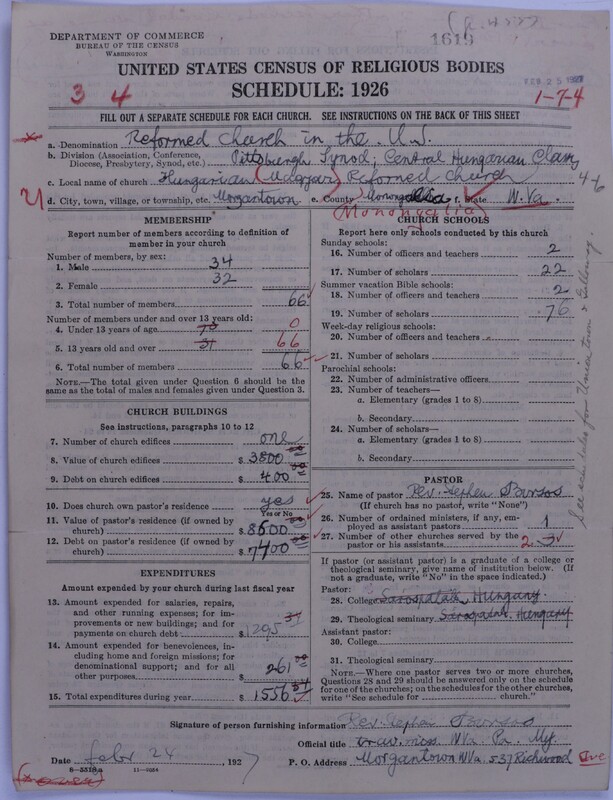 1619
DEPARTMENT OF COMMERCE
BUREAU OF THE CENSUS
WASHINGTON
UNITED STATES CENSUS OF RELIGIOUS BODIES
SCHEDULE: 1926
3 4
1-7-4
FILL OUT A SEPARATE SCHEDULE FOR EACH CHURCH. SEE INSTRUCTIONS ON THE BACK OF THIS SHEET
a. Denomination Reformed Church in the U.S.
b. Division (Association, Conference, Diocese, Presbytery, Synod, etc.) Pittsburgh Synod, Central Hungarian Class
c. Local name of church Hungarian (Magyar) Reformed Church
4-6
d. City, town, village, or township, etc. Morgantown e. County Monongalia f. State W. Va.
Monongalia
MEMBERSHIP
Report number of members according to definition of member in your church
Number of members, by sex:
1. Male 34
2. Female 32
3. Total number of members 66
Number of members under and over 13 years old:
4. Under 13 years of age 0
5. 13 years old and over 66
6. Total number of members 66
NOTE.—The total given under Question 6 should be the same as the total of males and females given under Question 3.
CHURCH BUILDINGS
See instructions, paragraphs 10 to 12
7. Number of church edifices one
8. Value of church edifices $ 3800 00
9. Debt on church edifices $ 400 00
10. Does church own pastor's residence? yes
Yes or No
11. Value of pastor's residence (if owned by church) $ 8500 00
12. Debt on pastor's residence (if owned by church) $ 7400 00
EXPENDITURES
Amount expended by your church during last fiscal year
13. Amount expended for salaries, repairs, and other running expenses; for improvements or new buildings; and for payments on church debt $ 1295
14. Amount expended for benevolences, including home and foreign missions; for denominational support; and for all other purposes $ 261
15. Total expenditures during year $ 1556
CHURCH SCHOOLS
Report here only schools conducted by this church
Sunday schools:
16. Number of officers and teachers 2
17. Number of scholars 22
Summer vacation Bible schools:
18. Number of officers and teachers 2
19. Number of scholars 76
Week-day religious schools:
20. Number of officers and teachers
21. Number of scholars
Parochial schools:
22. Number of administrative officers
23. Number of teachers—
a. Elementary (grades 1 to 8)
b. Secondary
24. Number of scholars—
a. Elementary (grades 1 to 8)
b. Secondary
PASTOR
25. Name of pastor Rev. Stephen
(If church has no pastor, write "None")
26. Number of ordained ministers, if any, employed as assistant pastors 1
27. Number of other churches served by the pastor or his assistants 2 3
If pastor (or assistant pastor) is a graduate of a college or theological seminary, give name of institution below. (If not a graduate, write "No" in the space indicated.)
Pastor:
28. College Sarospatak, Hungary.
29. Theological seminary Sarospatak, Hungary
Assistant pastor:
30. College
31. Theological seminary
NOTE.—Where one pastor serves two or more churches, Questions 28 and 29 should be answered only on the schedule for one of the churches; on the schedules for the other churches, write "See schedule for ______ church."
See schedules for Uniontown &
Signature of person furnishing information Rev. Stephen
Official title trav. miss. W.Va. Pa. My.
Date Febr 24 1927
P. O. Address Morgantown W.Va. 537 Richwood Ave
8-5518a 11-9284